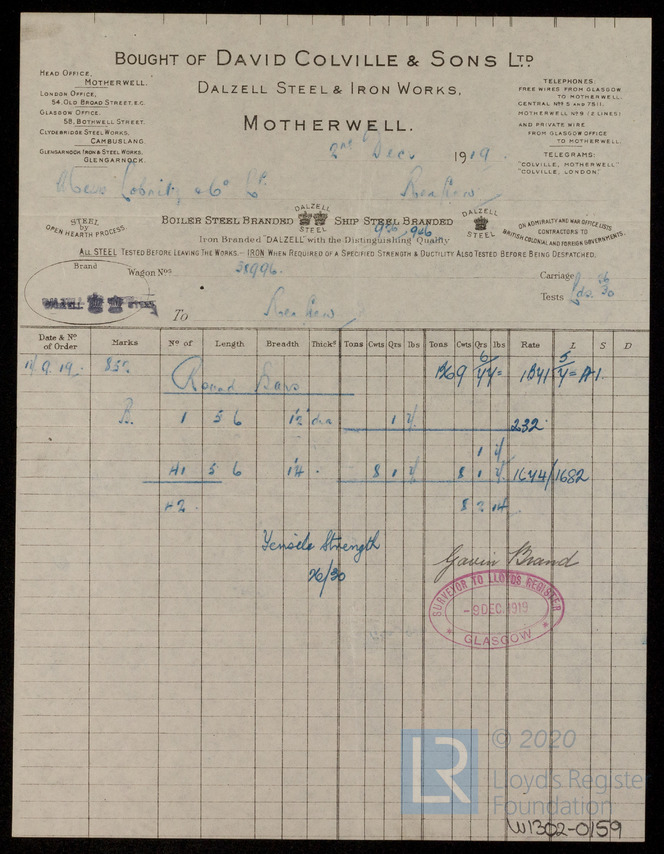 BOUGHT OF DAVID COLVILLE & SONS LTD
HEAD OFFICE, MOTHERWELL.
LONDON OFFICE, 54. OLD BROAD STREET, E.C.
GLASGOW OFFICE. 58. BOTHWELL STREET.
CLYDEBRIDGE STEEL WORKS, CAMBUSLANG.
GLENGARNOCK IRON & STEEL WORKS, GLENGARNOCK.
DALZELL STEEL & IRON WORKS,
MOTHERWELL.
TELEPHONES:
FREE WIRES FROM GLASGOW
TO MOTHERWELL.
CENTRAL Nos 5 AND 7511.
MOTHERWELL No 9 (2 LINES)
AND PRIVATE WIRE
FROM GLASGOW OFFICE
TO MOTHERWELL.
TELEGRAMS:
"COLVILLE, MOTHERWELL"
"COLVILLE, LONDON"
2nd Dec. 1919.
Lobnitz & Co Ld.
Renfrew
STEEL by OPEN HEARTH PROCESS
BOILER STEEL BRANDED DALZELL STEEL SHIP STEEL BRANDED DALZELL STEEL
ON ADMIRALTY AND WAR OFFICE LISTS
CONTRACTORS TO
BRITISH, COLONIAL AND FOREIGN GOVERNMENTS.
Iron Branded "DALZELL" with the Distinguishing Quality
ALL STEEL TESTED BEFORE LEAVING THE WORKS. - IRON WHEN REQUIRED OF A SPECIFIED STRENGTH & DUCTILITY ALSO TESTED BEFORE BEING DESPATCHED.
Brand
Wagon Nos
Carriage
Tests
DALZELL STEEL
To Renfrew
Date & No of Order Marks No of Length Breadth Thicks Tons Cwts Qrs lbs Tons Cwts Qrs lbs Rate £ S D
857
Round Bars
B. 1 5 6 1½ dia 1
232
41 5 6 1¼ 8 1 8 1 1674/1682
42 8 2 14
Tensile Strength
26/30
Gavin Brand
SURVEYOR TO LLOYDS REGISTER
-9 DEC. 1919
GLASGOW
© 2020
LR
Lloyd's Register
Foundation
W1302-0159